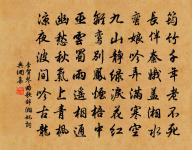 筠竹千年老不死
長伴秦娥蓋湘水
蠻娘吟弄滿寒空
九山靜綠淚花紅
離鸞別鳳煙梧中
巫雲蜀雨遙相通
幽愁秋氣上青楓
涼夜波間吟古龍
李賀琴曲歌辭湘妃